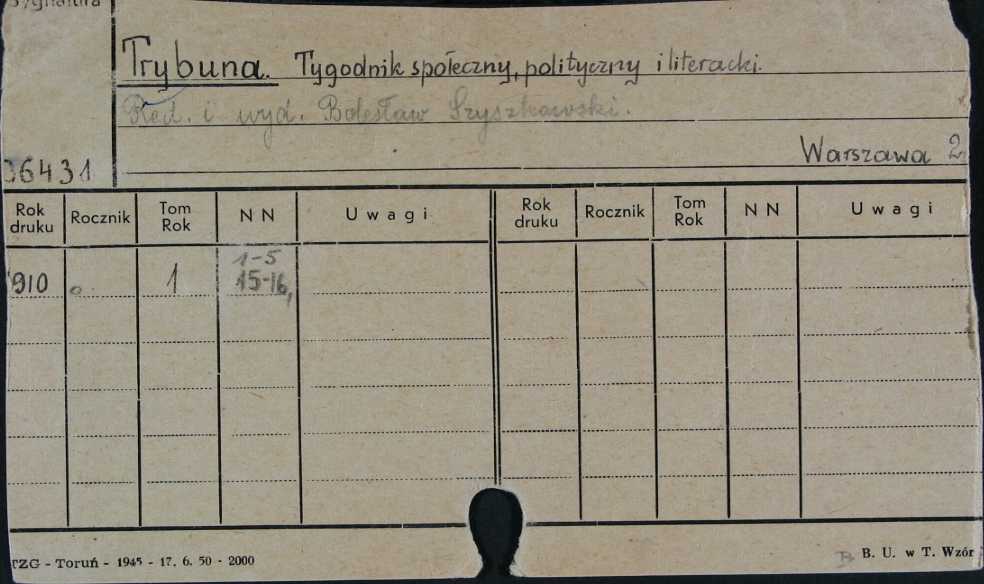 Sygnatura
Trybuna. Tygodnik społeczny, polityczny i literacki.
Red. i wyd. Bolesław Szyszkowski.
Warszawa 2
36431
Rok druku Rocznik Tom Rok N N Uwagi Rok druku Rocznik Tom Rok N N Uwagi
1-5
910 1 15-16,
TZG - Toruń - 1945 - 17. 6. 50 - 2000 B. U. w T. Wzór